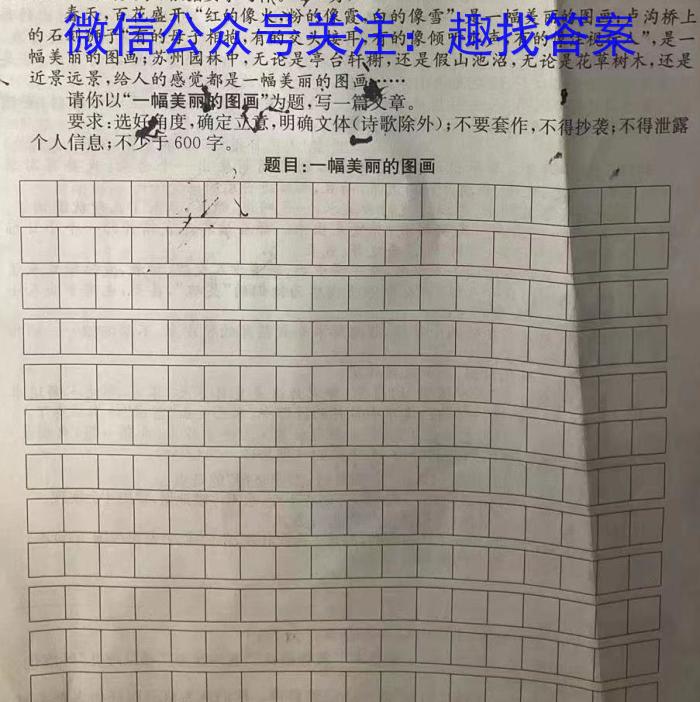 春天,百花盛开,“红的像火,粉的像霞,白的像雪”,是一幅美丽的图画;卢沟桥上
微信公众号关注:趣找答案
的石刻狮子,“有的母子相抱,有的交头接耳,有的像倾听水声,有的像注视行人”,是一
幅美丽的图画;苏州园林中,无论是亭台轩榭,还是假山池沼,无论是花草树木,还是
近景远景,给人的感觉都是一幅美丽的图画……
请你以“一幅美丽的图画”为题,写一篇文章。
要求:选好角度,确定立意,明确文体(诗歌除外);不要套作,不得抄袭;不得泄露
个人信息;不少于 600 字。
题目:一幅美丽的图画